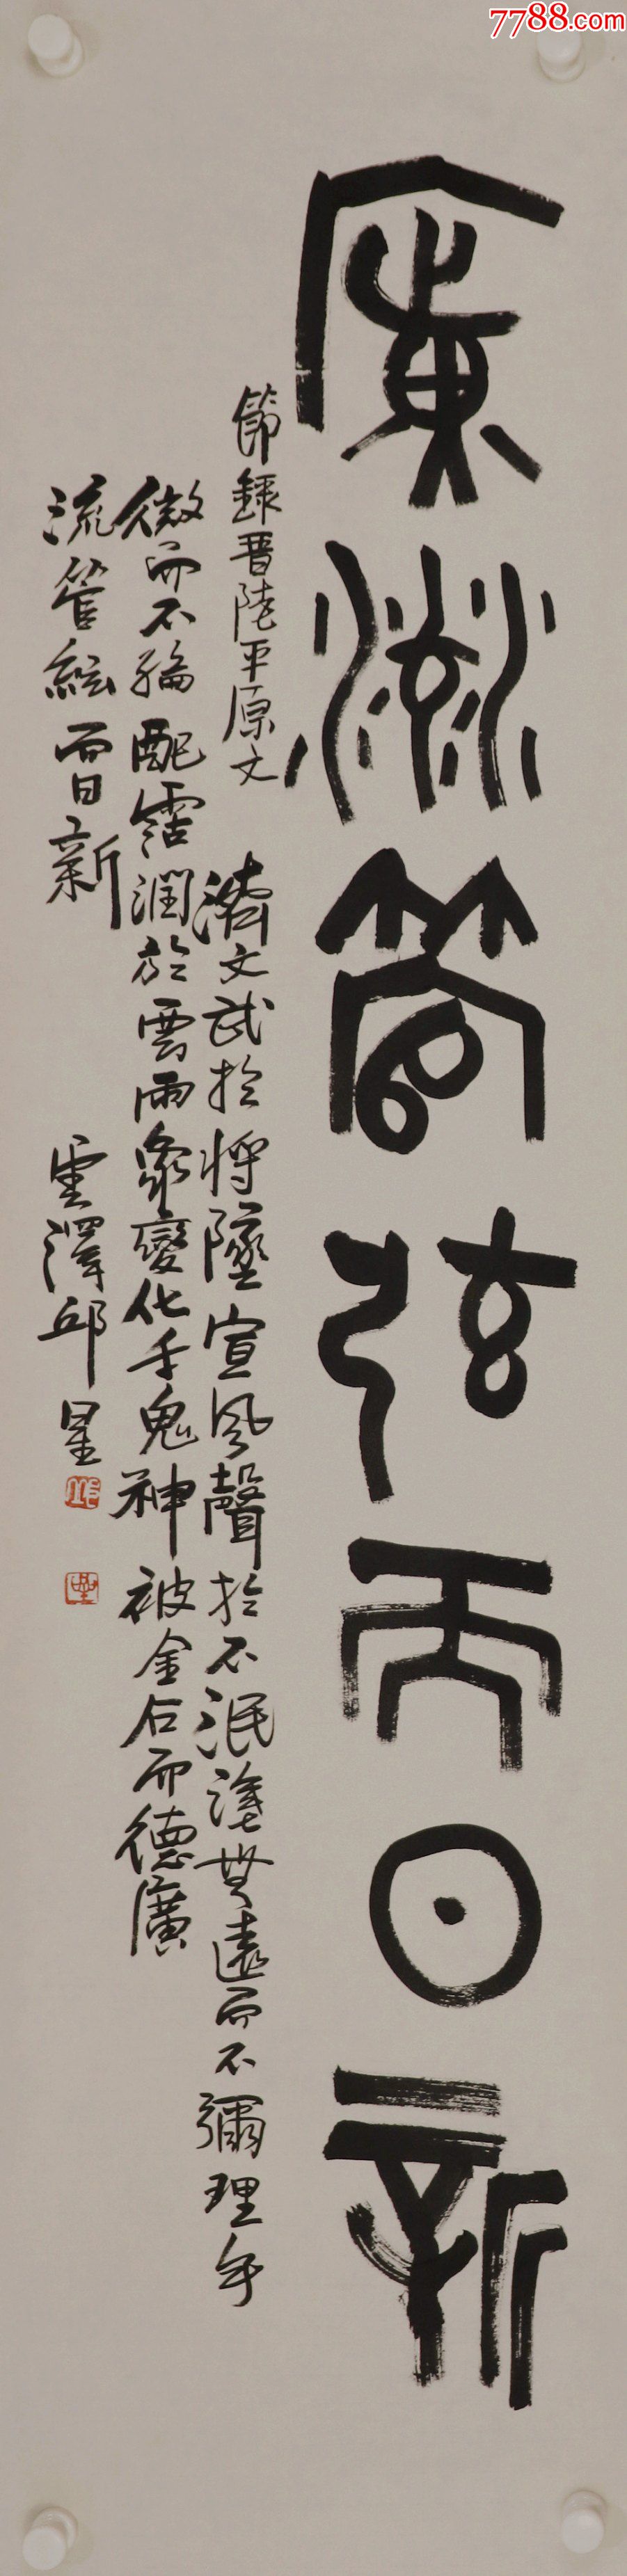 7788.com
廣流管弦而日新
節錄晉陸平原文
濟文武於將墜宣風聲於不泯塗無遠而不彌理無
微而不綸配霑潤於雲雨象變化乎鬼神被金石而德廣
流管絃而日新
雲澤邱星